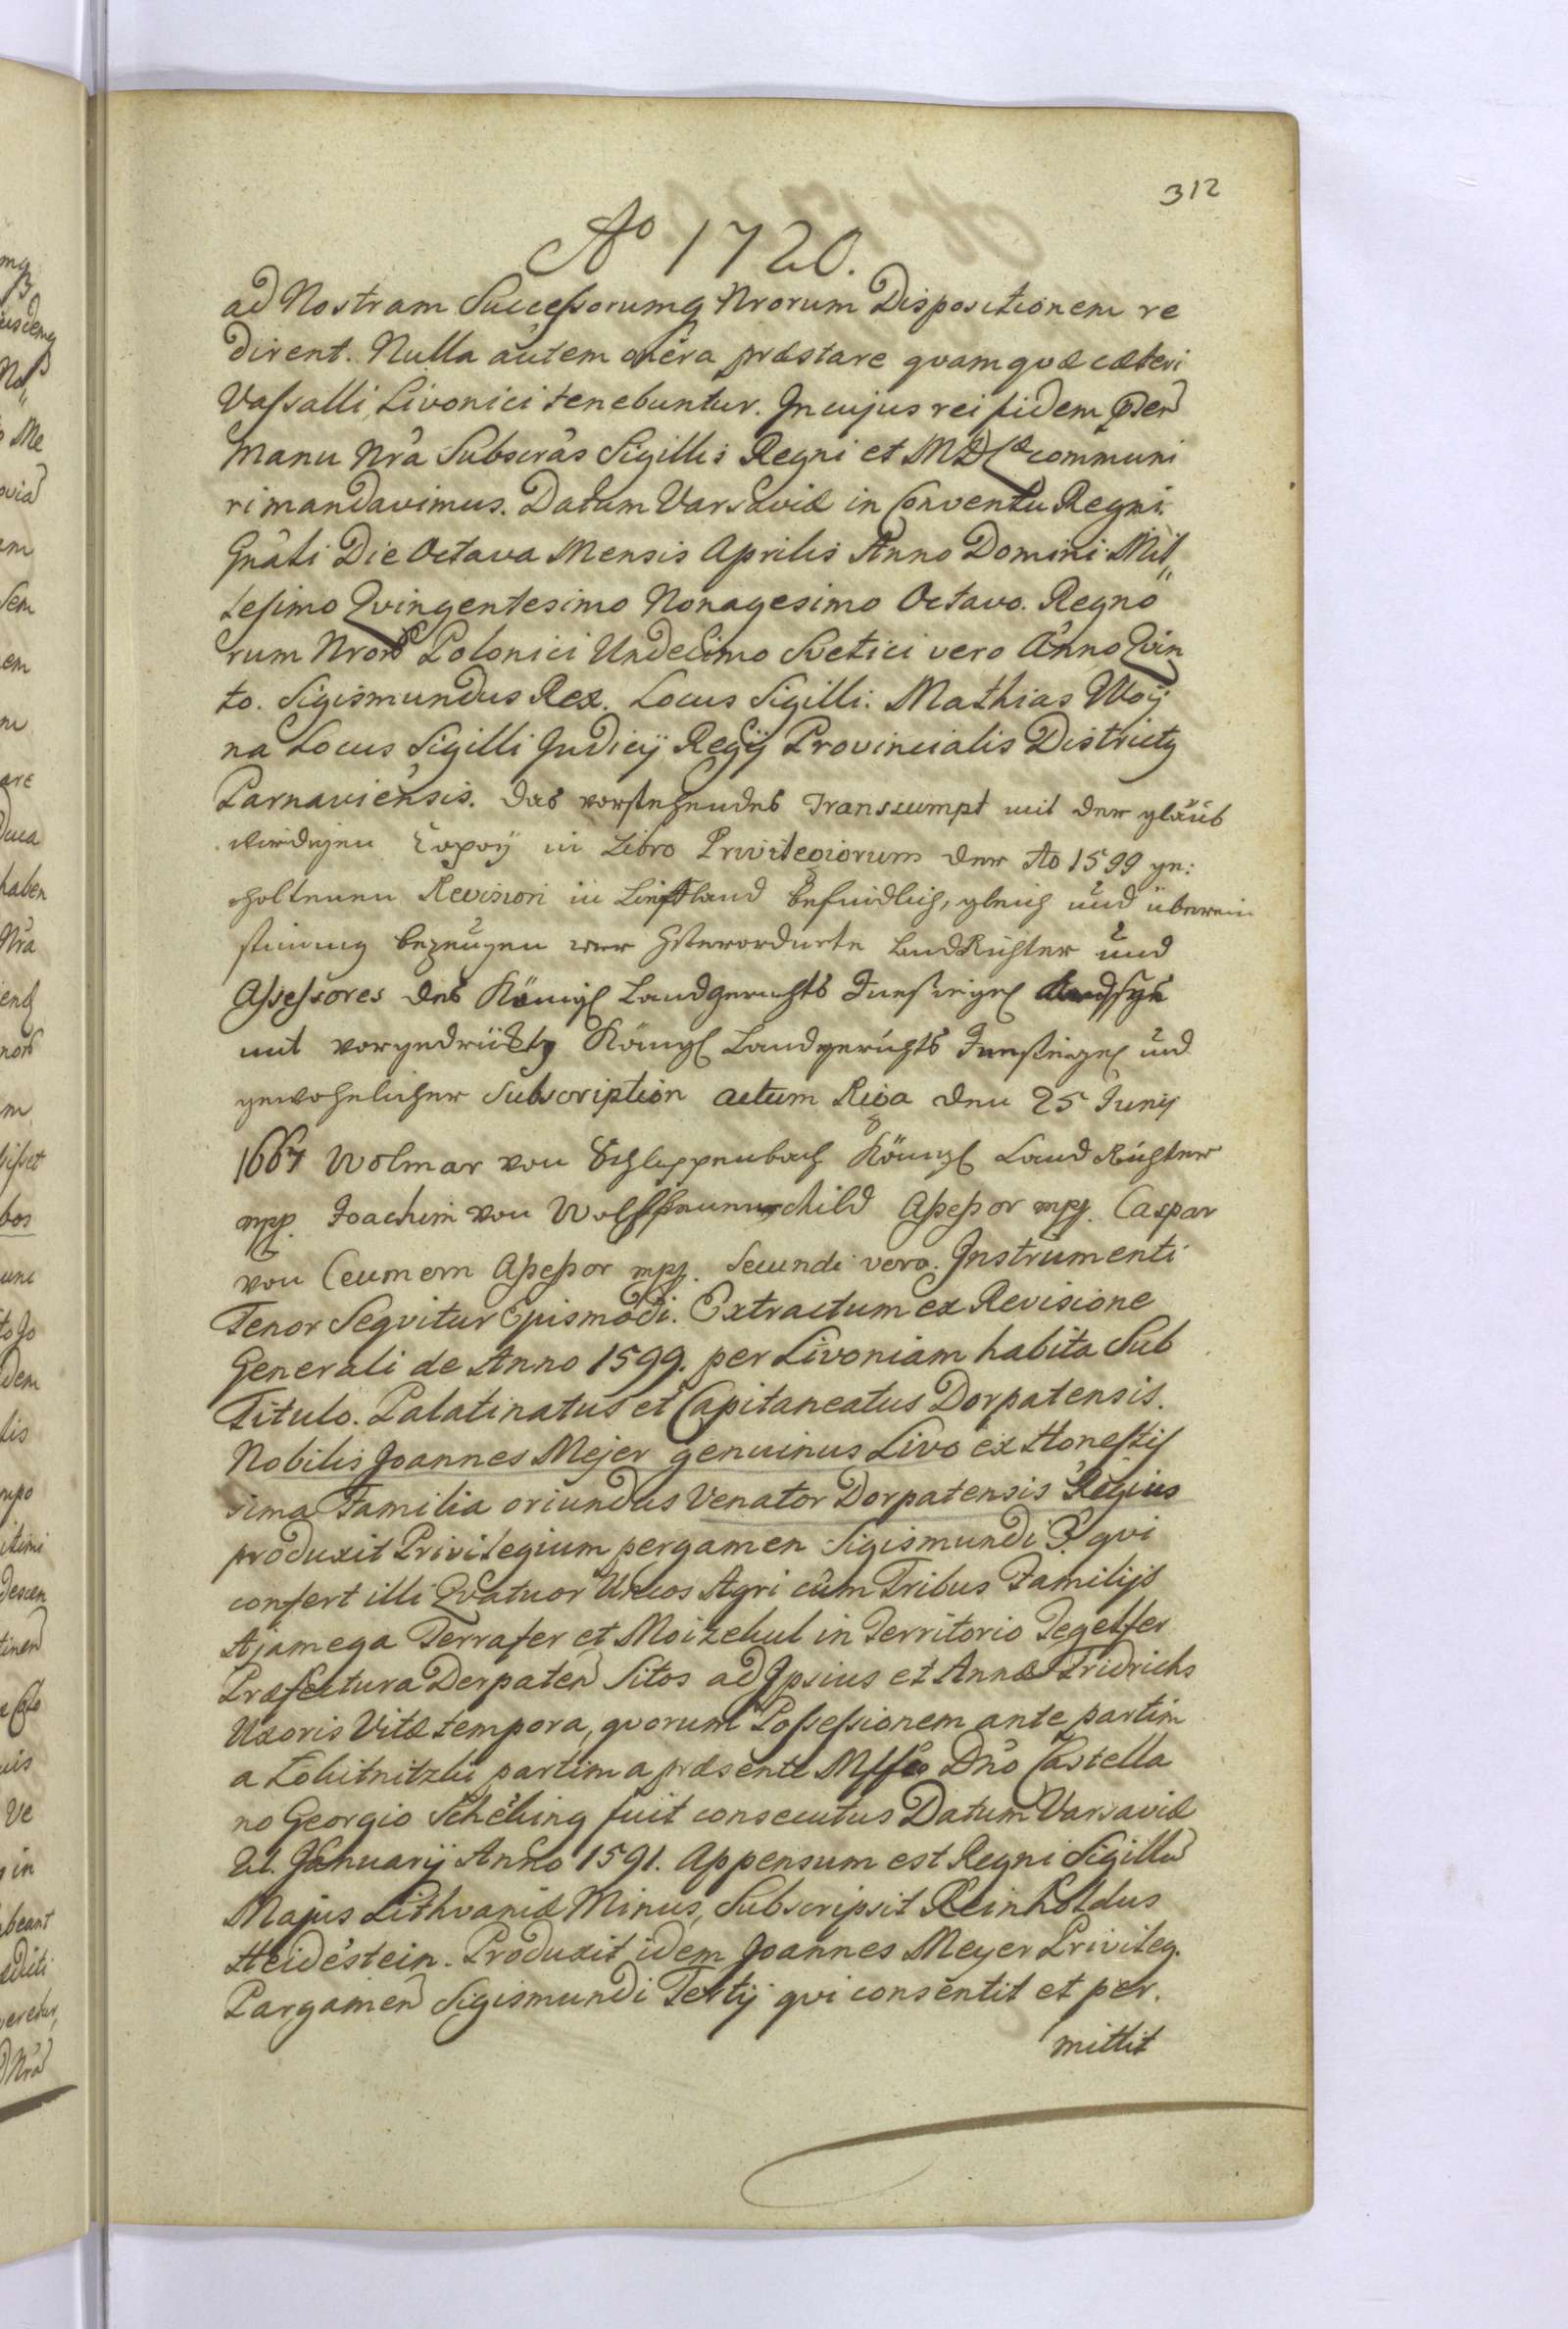 312
Ao 1720.
ad Nostram Successorumq Nrorum Dispositionem re
dirent. Nulla autem onera præstare qvam qvæ cæteri
Vassalli Livonici tenebuntur. In cujus rei fidem
Manu Nra Subscras Sigillis Regni et MDL communi
ri mandavimus. Datum Varsaviæ in Conventu Regni
Gnali Die Octava Mensis Aprilis Anno Domini Mil„
lesimo Qvingentesimo Nonagesimo Octavo. Regno
rum Nror Polonici Undecimo Svetici vero Anno Qvin
to. Sigismundus Rex. Locus Sigilli: Mathias Woÿ
na Locus Sigilli Judicÿ Regÿ Provincialis Districtq
Parnaviensis. das vorstehendes Transsumpt mit der glaub
würdigen Copoÿ in Libro Privilegiorum der Ao 1599 ge:
haltenen Revision in Liefland befindlich, gleich und überein
stimmig bezeugen wir LandRichter und
Assessores des Königl Landgerichts Insiegel
mit vorgedrückty Königl Landgerichts Insiegel und
gewohnlicher Subscription actum Riga den 25 Junÿ
1667 Wolmar von Schlippenbach Königl LandRichter
mpp. Joachim von Assessor mpp. Caspar
von Ceumern Assessor mpp. Secundi vero. Instrumenti
Tenor Seqvitur Ejusmodi. Extractum ex Revisione
Generali de Anno 1599. per Livoniam habita Sub
Titulo. Palatinatus et Capitaneatus Dorpatensis.
Nobilis Joannes Mejer genuinus Livo ex Honestis
sima Familia oriundus Venator Dorpatensis Regius
produxit Privilegium pergamen Sigismundi 3. qvi
confert illi Qvatuor Uncos Agri cum Tribus Familijs
Ajamega Terrafer et Moizekul in Territorio Tegelfer
Præfectura Derpaten Sitos ad Ipsius et Annæ Fridrichs
Uxoris Vitæ tempora, qvorum Possessionem ante partim
a partim a præsente Dno Castella
no Georgio Schenking fuit consecutus Datum Varsaviæ
Januarÿ Anno 1591. Appensum est Regni Sigillu
Majus Lithvaniæ Minus, Subscripsit Reinholdus
Heidestein. Produxit idem Joannes Meyer Privileg.
Pargamen Sigismundi Tertÿ qvi consentit et per.
mittit